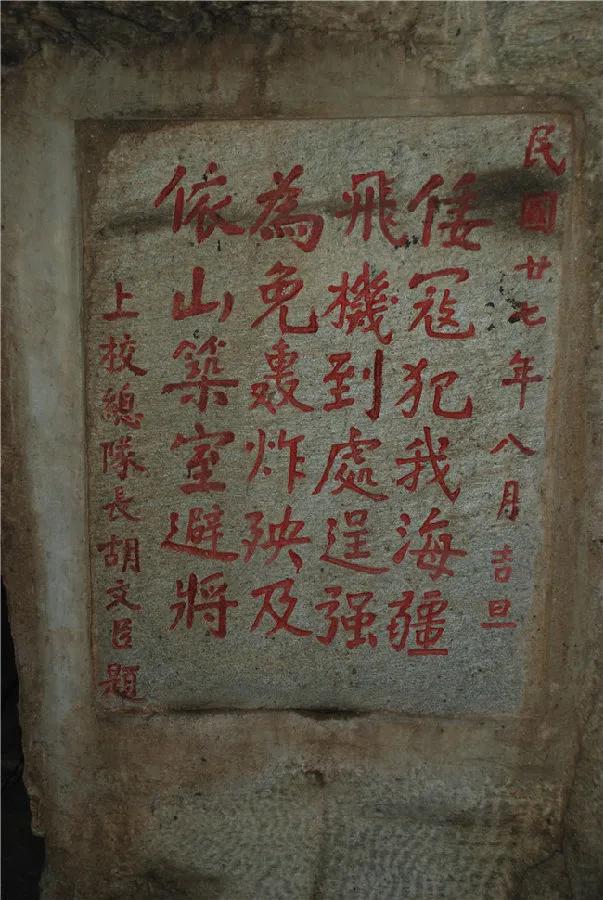 民國廿七年八月吉旦
倭寇犯我海疆
飛機到處逞强
為免轟炸殃及
依山築室避將
上校總隊長胡文臣題